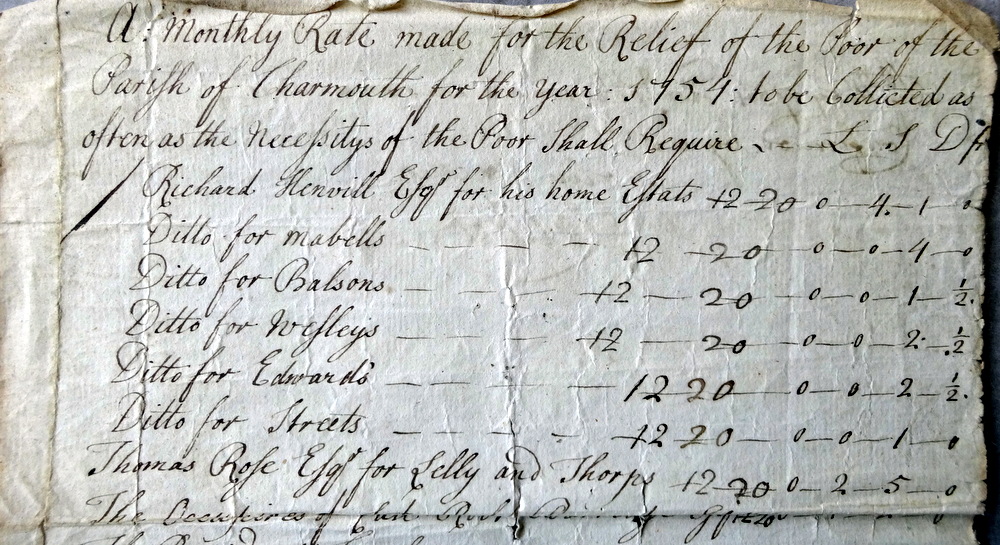 A: Monthly Rate made for the Relief of the Poor of the
Parish of Charmouth for the Year: 1754: to be Collicted as
often as the Necessitys of the Poor Shall Require L S D f
Richard Henvill Esqr for his home Estats 12 20 0 — 4 — 1 0
Ditto for Mabells — — — — 12 — 20 0 — 0 — 4 — 0
Ditto for Balsons — — — 12 — 20 0 — 0 — 1 — ½
Ditto for Wesleys — — — 12 — 20 0 — 0 — 2 ½
Ditto for Edwards — — — 12 20 — 0 — 0 — 2 — ½
Ditto for Streets — — — — 12 20 — 0 — 0 — 1 0
Thomas Rose Esqr for Lelly and Thorps 12 — 20 0 — 2 — 5 — 0
The of